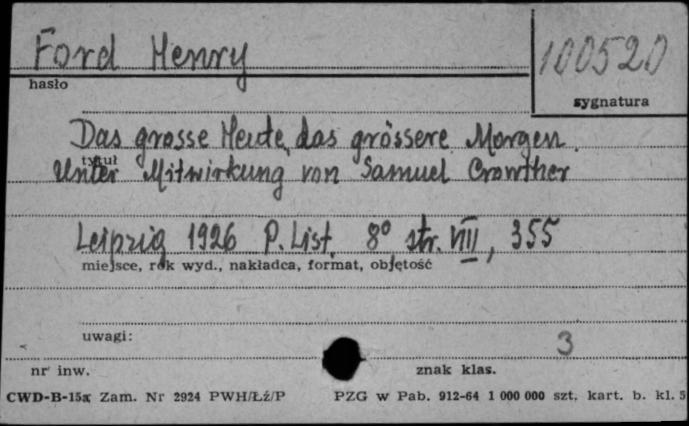 Ford Henry
100520
hasło
sygnatura
Das grosse Heute, das grössere Morgen.
tytuł
Unter Mitwirkung von Samuel Crowther
Leipzig 1926 P. List 8° str. VIII, 355
miejsce, rok wyd., nakładca, format, objętość
uwagi:
3
nr inw.
znak klas.
CWD-B-15a Zam. Nr 2924 PWH/Łź/P PZG w Pab. 912-64 1 000 000 szt. kart. b. kl. 5